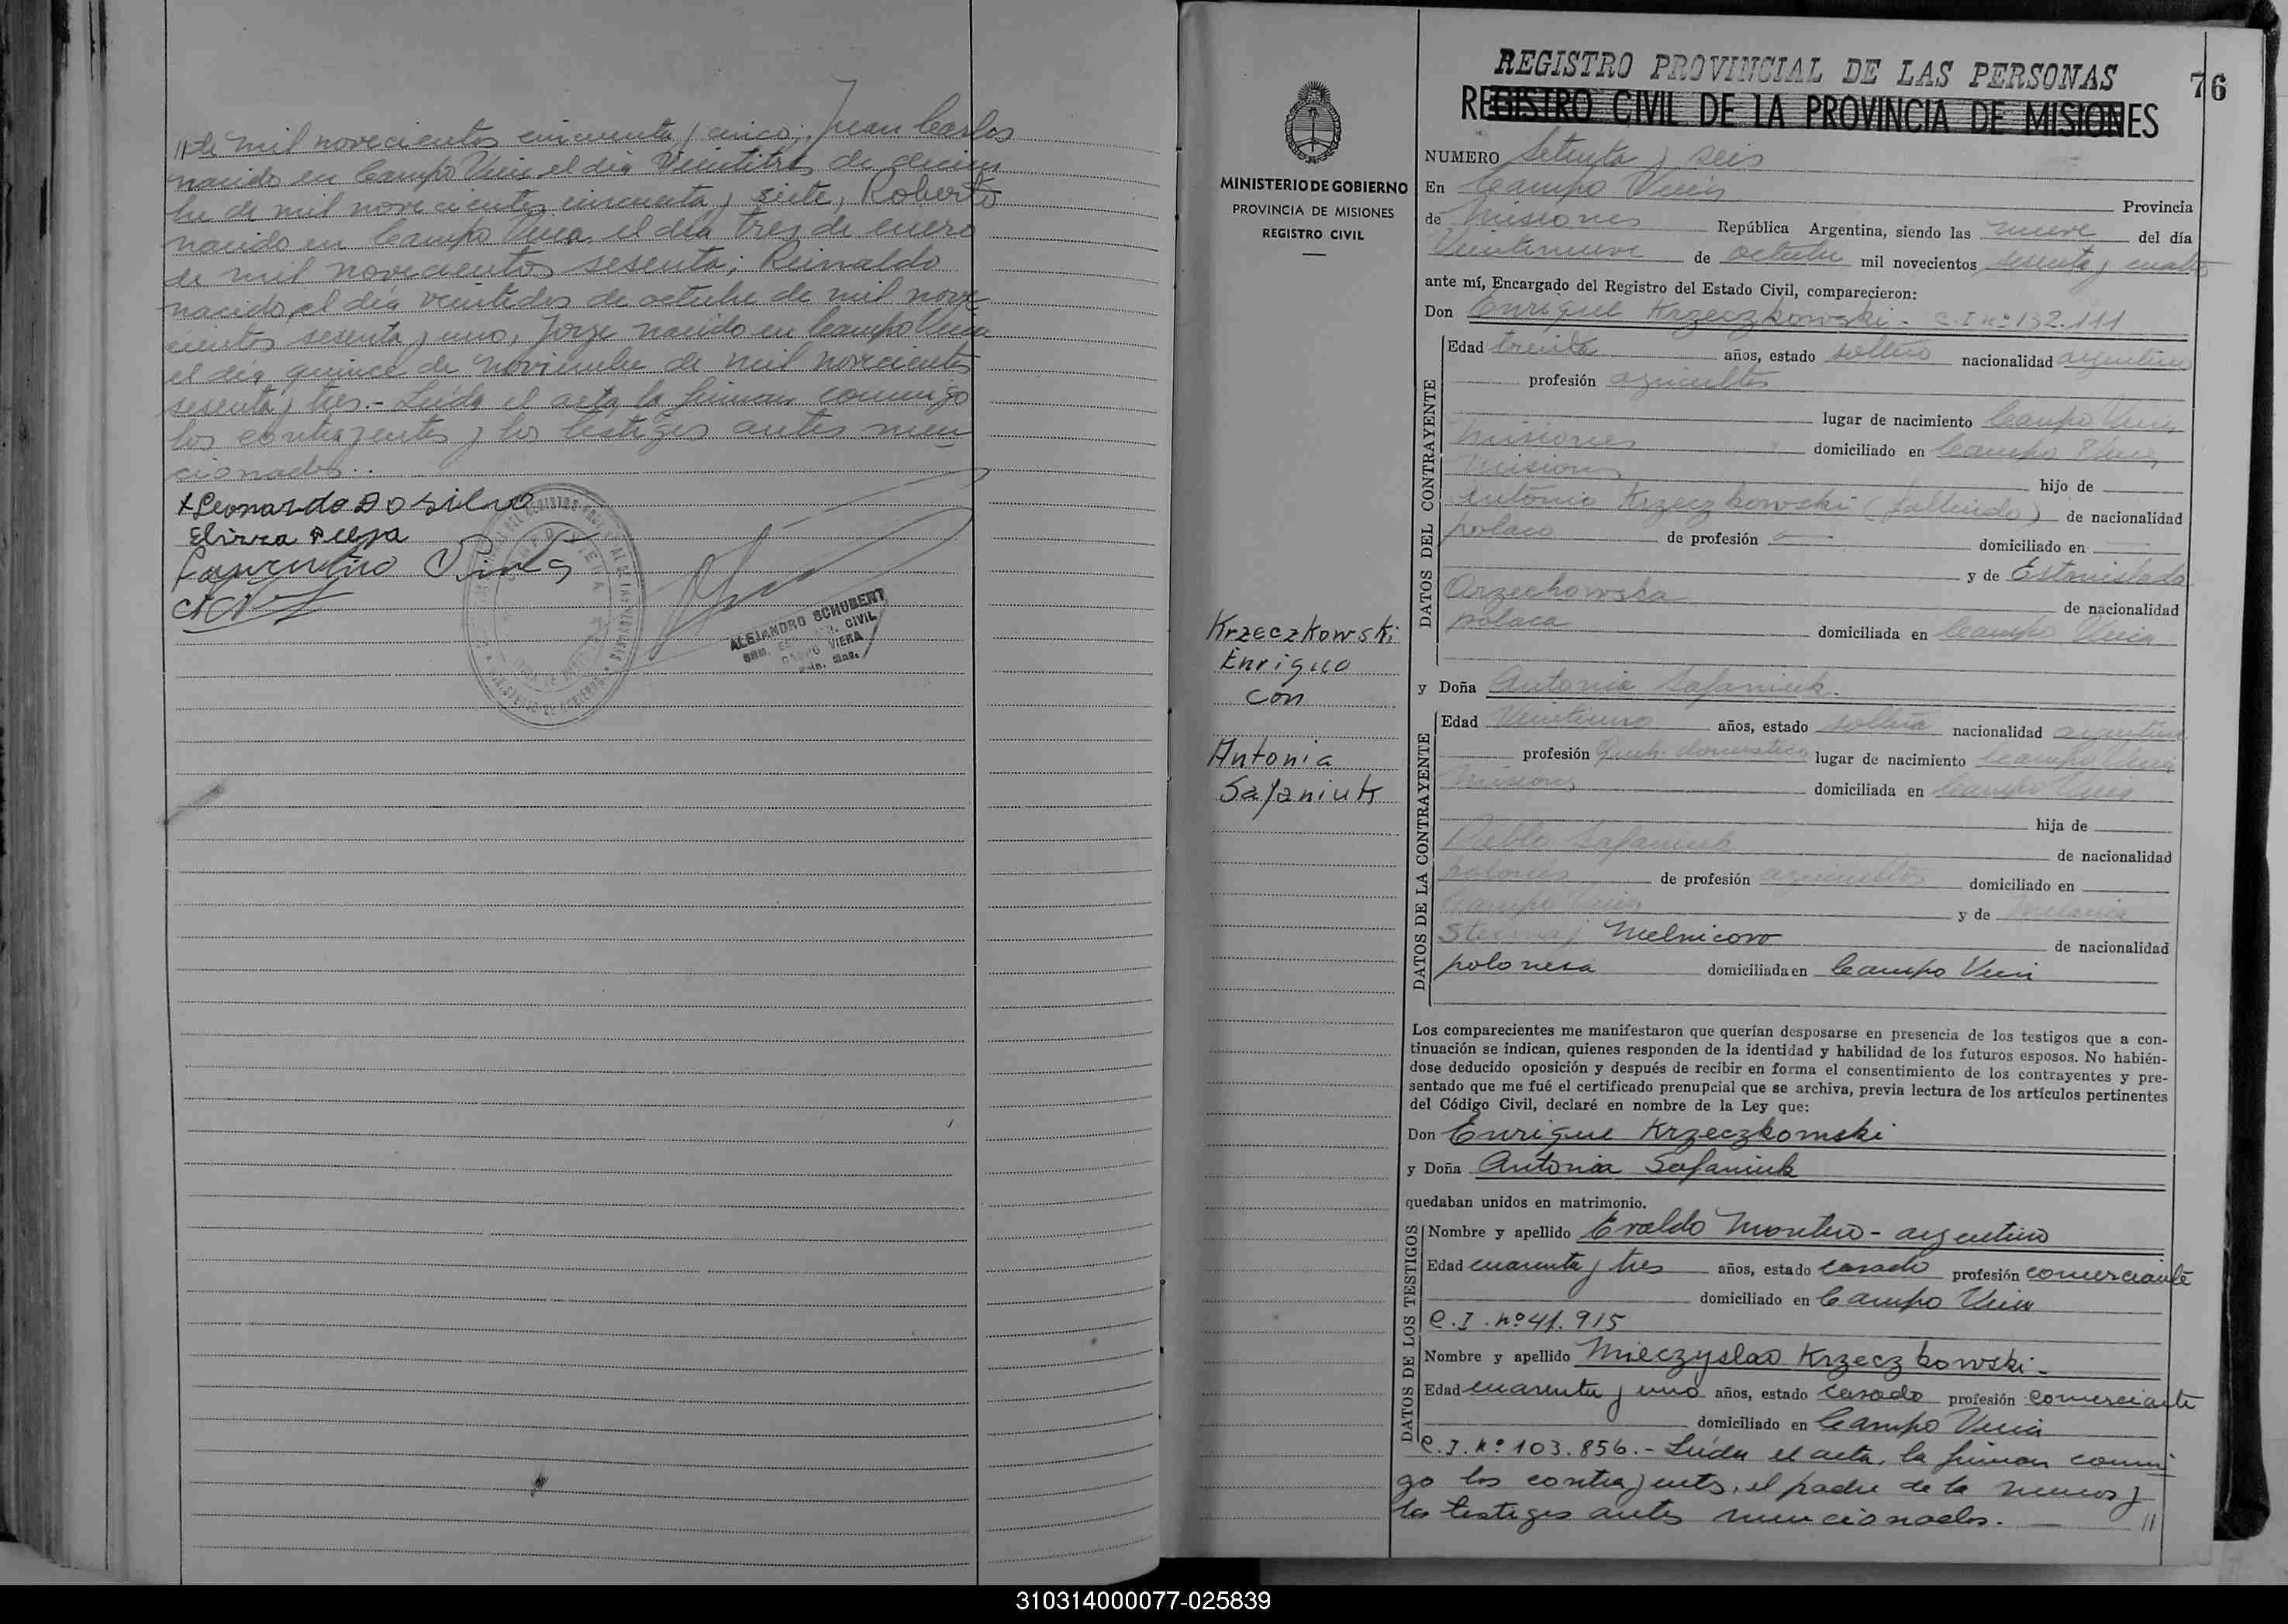 //de mil novecientos cincuenta y cinco; Juan Carlos
nacido en Campo Viera el dia veintitres de diciem
bre de mil novecientos cincuenta y siete, Roberto
nacido en Campo Viera, el dia tres de enero
de mil novecientos sesenta; Reinaldo
nacido el dia veintidos de octubre de mil nove
cientos sesenta y uno, Jorge nacido en Campo Viera
el dia quince de noviembre de mil novecientos
sesenta y tres.- Leída el acta la firman conmigo
los contrayentes y los testigos antes men
cionados..
x Leonardo Do Silva
ALEJANDRO SCHUBERT
CIVIL
CAMPO VIERA
REGISTRO PROVINCIAL DE LAS PERSONAS
76
REGISTRO CIVIL DE LA PROVINCIA DE MISIONES
MINISTERIO DE GOBIERNO
PROVINCIA DE MISIONES
REGISTRO CIVIL
Krzeczkowski
Enrique
con
Antonia
Safaniuk
NUMERO Setenta y seis
En Campo Viera Provincia
de Misiones República Argentina, siendo las nueve del día
Veintinueve de octubre mil novecientos sesenta y cuatro
ante mí, Encargado del Registro del Estado Civil, comparecieron:
Don Enrique Krzeczkowski - C.I nº 132.111
DATOS DEL CONTRAYENTE
Edad treinta años, estado soltero nacionalidad argentino
profesión agricultor
lugar de nacimiento Campo Viera
Misiones domiciliado en Campo Viera
Misiones hijo de
Antonio Krzeczkowski (fallecido) de nacionalidad
polaco de profesión domiciliado en
y de Estanislada
Orzechowska de nacionalidad
polaca domiciliada en Campo Viera
y Doña Antonia Safaniuk.
DATOS DE LA CONTRAYENTE
Edad Veintiuno años, estado soltera nacionalidad argentina
profesión Queh. domestico lugar de nacimiento Campo Viera
Misiones domiciliada en Campo Viera
hija de
Pablo Safaniuk de nacionalidad
polones de profesión agricultor domiciliado en
Campo Viera y de
Melnicoro de nacionalidad
polonesa domiciliada en Campo Viera
Los comparecientes me manifestaron que querían desposarse en presencia de los testigos que a con-
tinuación se indican, quienes responden de la identidad y habilidad de los futuros esposos. No habién-
dose deducido oposición y después de recibir en forma el consentimiento de los contrayentes y pre-
sentado que me fué el certificado prenupcial que se archiva, previa lectura de los artículos pertinentes
del Código Civil, declaré en nombre de la Ley que:
Don Enrique Krzeczkowski
y Doña Antonia Safaniuk
quedaban unidos en matrimonio.
DATOS DE LOS TESTIGOS
Nombre y apellido Evaldo Monteiro - argentino
Edad cuarenta y tres años, estado casado profesión comerciante
domiciliado en Campo Viera
C.I. nº 41.915
Nombre y apellido Mieczyslao Krzeczkowski-
Edad cuarenta y uno años, estado casado profesión comerciante
domiciliado en Campo Viera
C.I. Nº 103.856.- Leída el acta, la firman conmi
go los contrayentes, el padre de la menor y
los testigos antes mencionados. — //
310314000077-025839